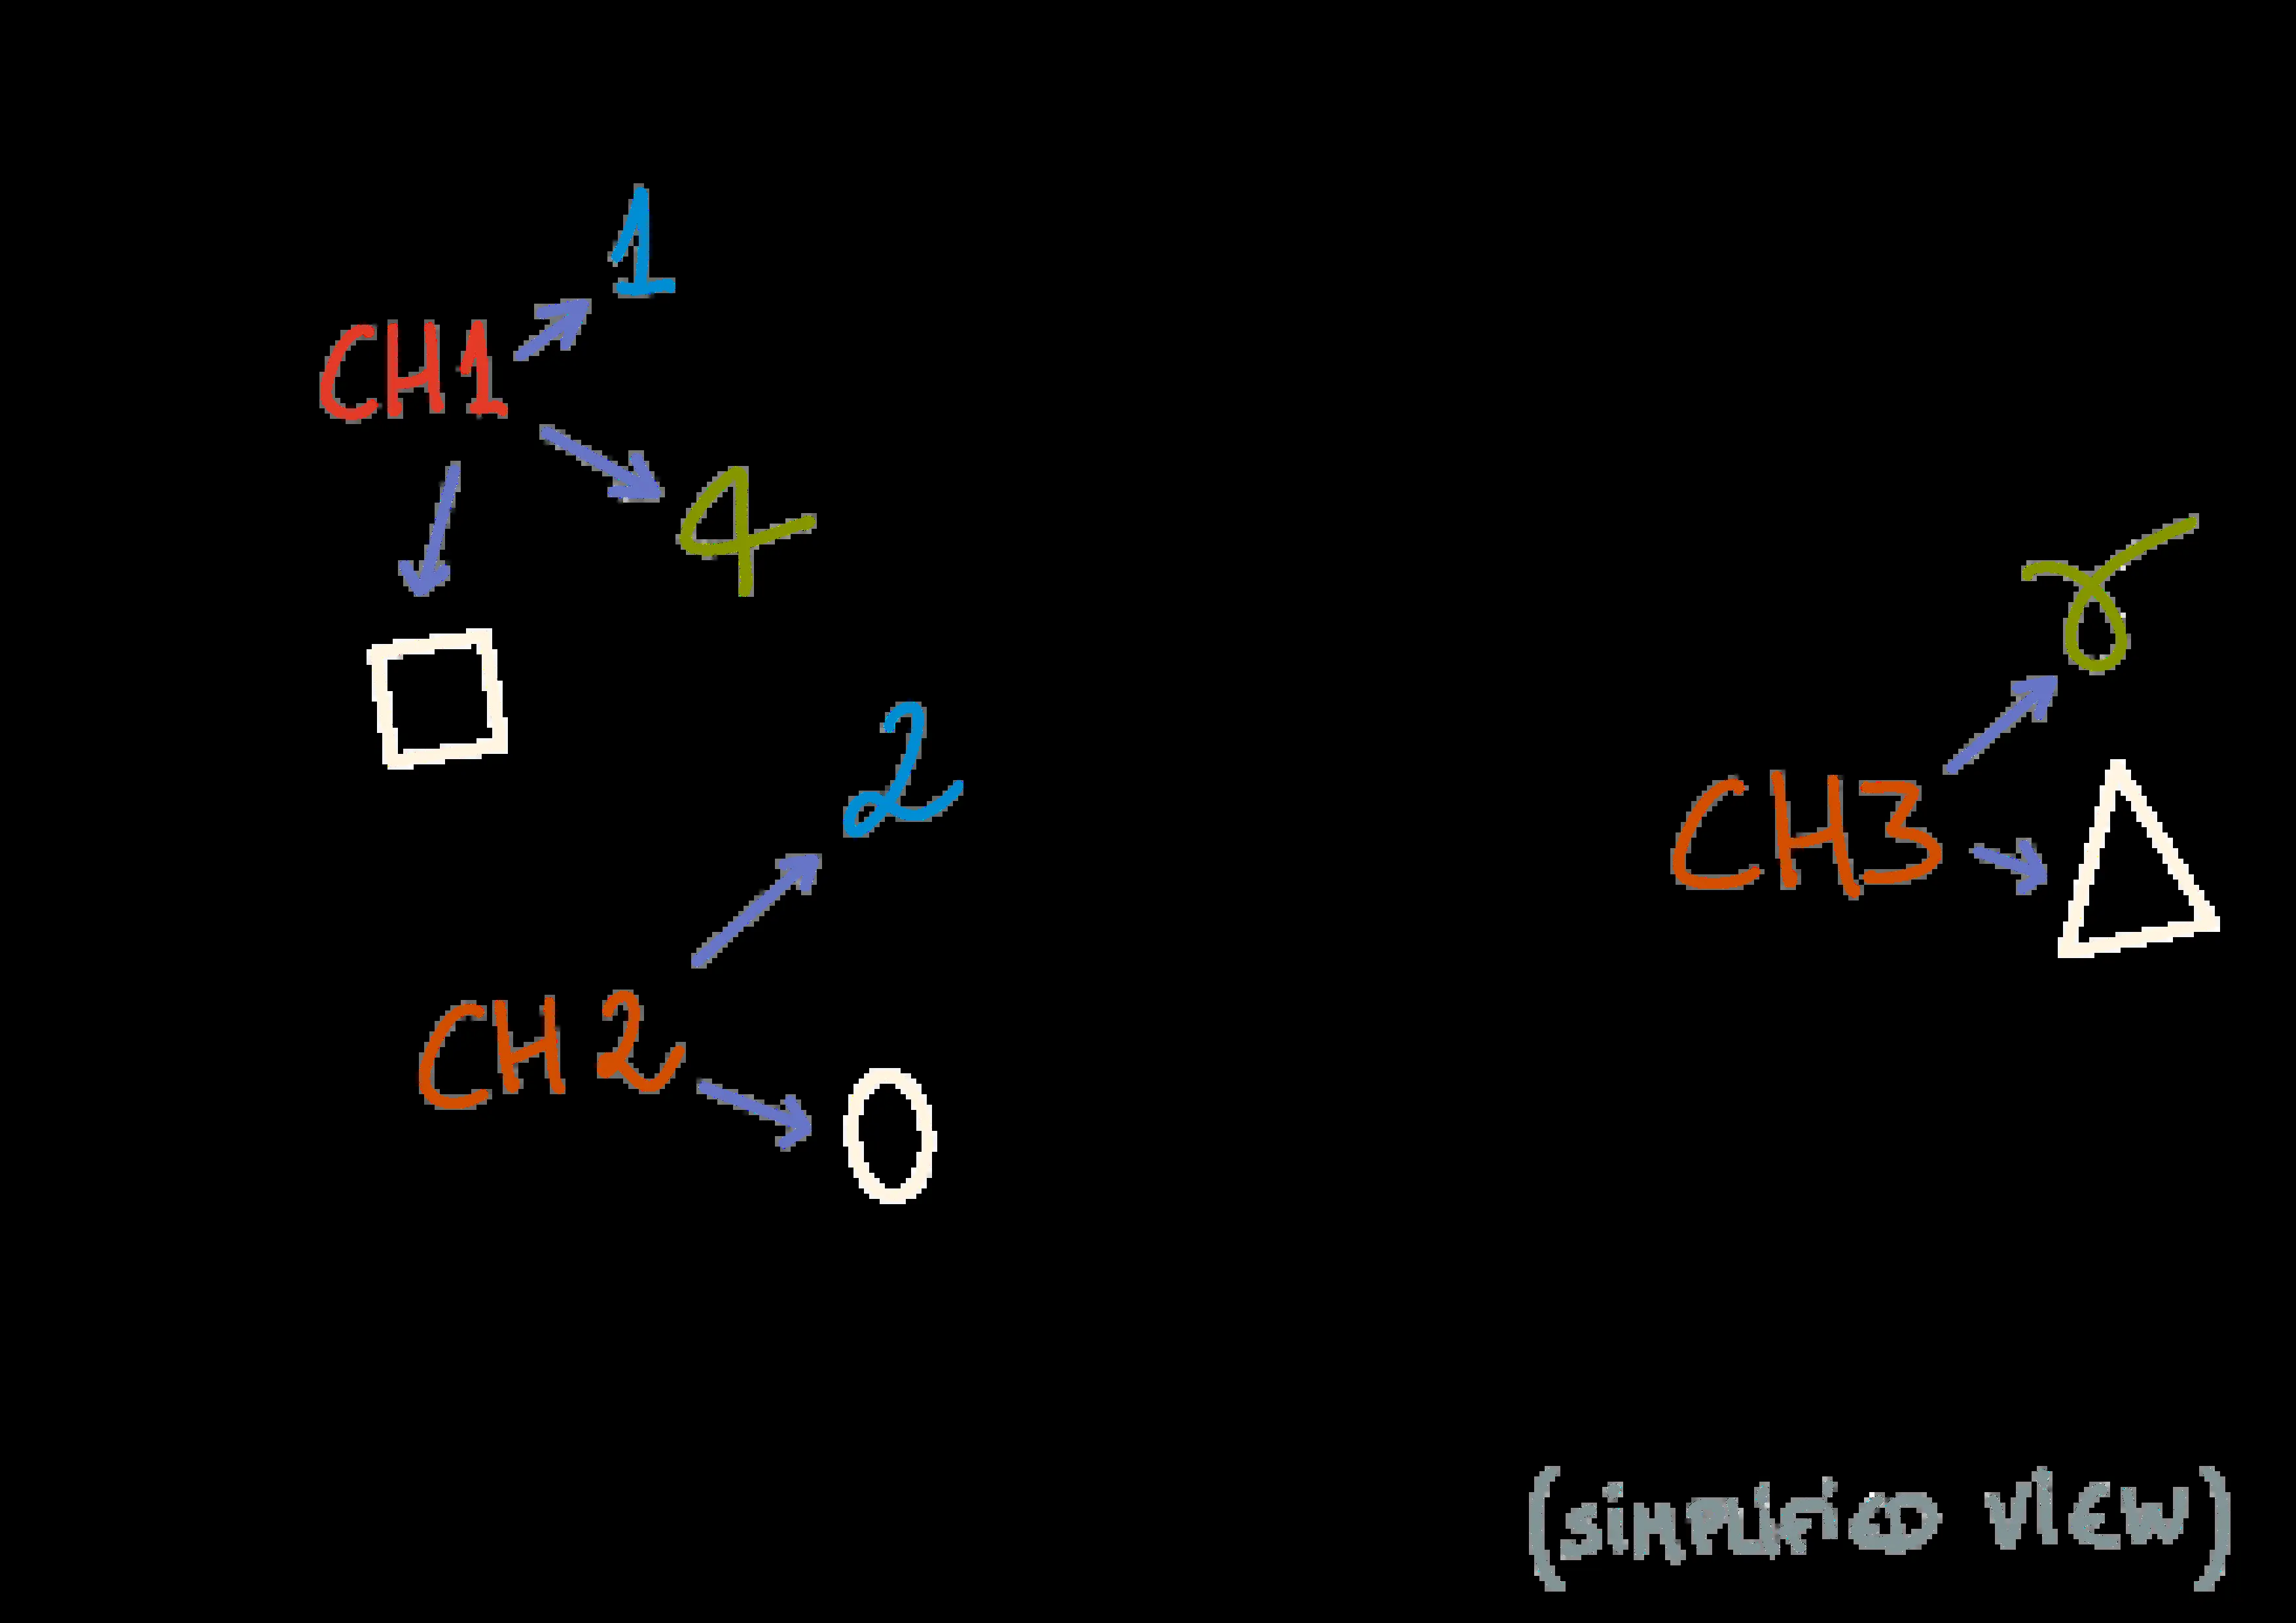 1
CH1
4
2
CH2
γ
CH3
(simplified view)